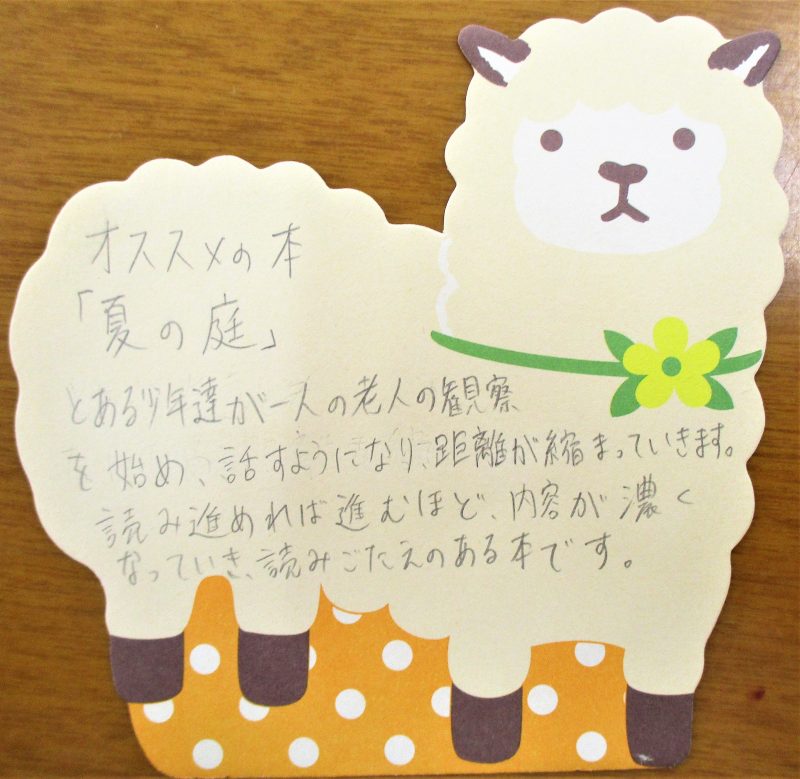 オススメの本
「夏の庭」
とある少年達が一人の老人の観察
を始め、話すようになり、距離が縮まっていきます。
読み進めれば進むほど、内容が濃く
なっていき、読みごたえのある本です。